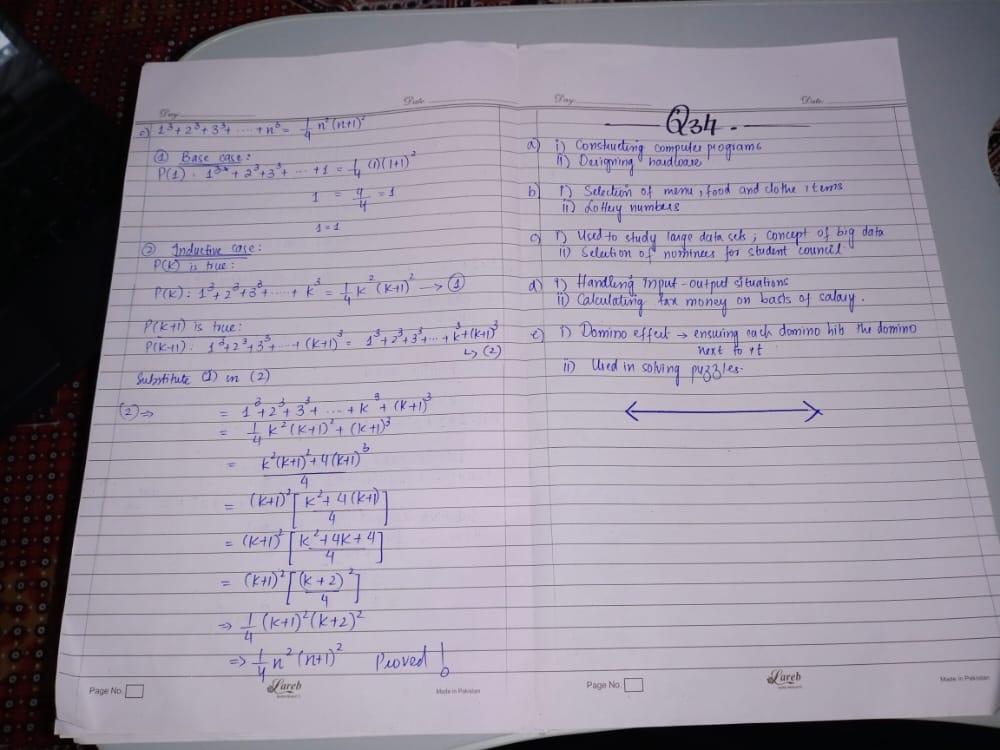 Day Date
c) 1³+2³+3³+ ..... +n³ = 1/4 n²(n+1)²
① Base case:
P(1) : 1³ + 2³+3³+ ... +1 = 1/4 (1)(1+1)²
1 = 4/4 = 1
1 = 1
② Inductive case:
P(k) is true:
P(k) : 1³+2³+3³+ ..... + k³ = 1/4 k² (k+1)² → ①
P(k+1) is true:
P(k+1) : 1³+2³+3³+ ... + (k+1)³ = 1³+2³+3³+ ... + k³+(k+1)³
↳ (2)
Substitute (1) in (2)
(2) ⇒ = 1³+2³+3³+ ... + k³ + (k+1)³
= 1/4 k²(k+1)² + (k+1)³
= k²(k+1)²+4(k+1)³ / 4
= (k+1)² [k²+4(k+1) / 4]
= (k+1)² [k²+4k+4 / 4]
= (k+1)² [(k+2)² / 4]
⇒ 1/4 (k+1)²(k+2)²
⇒ 1/4 n²(n+1)² Proved!
Page No. Lareb Made in Pakistan
Day Date
Q34.
a) i) Constructing computer programs
ii) Designing hardware
b) i) Selection of menu, food and clothe items
ii) Lottery numbers
c) i) Used to study large data sets; concept of big data
ii) Selection of nominees for student council
d) i) Handling Input-output situations
ii) Calculating tax money on basis of salary.
e) i) Domino effect → ensuring each domino hib the domino
next to it
ii) Used in solving puzzles.
Page No. Lareb Made in Pakistan